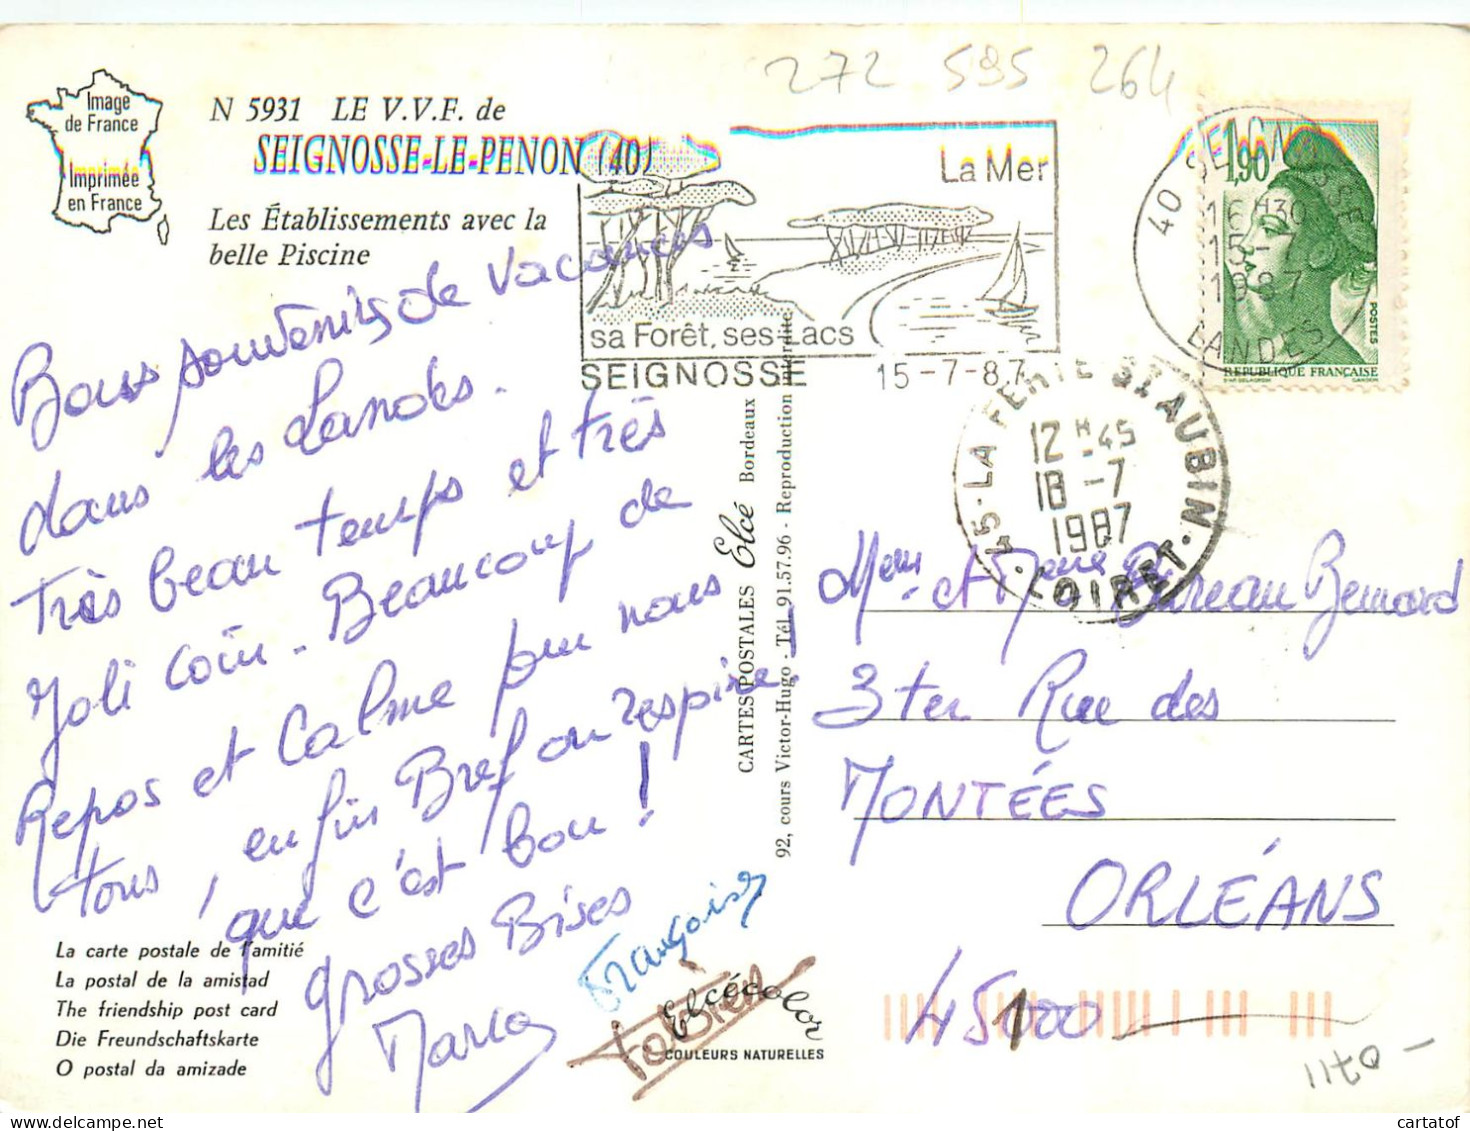 272 595 264
Image
de France
Imprimée
en France
N 5931 LE V.V.F. de
SEIGNOSSE-LE-PENON (40)
Les Établissements avec la
belle Piscine
La Mer
sa Forêt, ses Lacs
SEIGNOSSE
15-7-87
40 SEIGNOSSE
16H30
15-7
1987
LANDES
1,90
POSTES
RÉPUBLIQUE FRANÇAISE
45-LA FERTE ST AUBIN
12H45
18-7
1987
LOIRET
Bons souvenirs de vacances
dans les Landes.
Très beau temps et très
Joli coin. Beaucoup de
Repos et Calme pour nous
tous, enfin Bref on respire
que c'est bon!
grosses Bises
Françoise
Fabien
CARTES POSTALES Elcé Bordeaux
92, cours Victor-Hugo - Tél. 91.57.96 - Reproduction interdite
et Bernard
3 ter Rue des
MONTÉES
ORLÉANS
45000
La carte postale de l'amitié
La postal de la amistad
The friendship post card
Die Freundschaftskarte
O postal da amizade
Elcécolor
COULEURS NATURELLES
1170-
cartatof